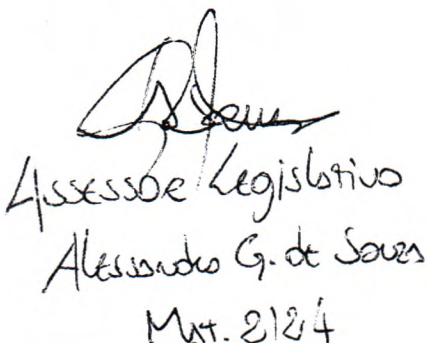 Assessor Legislativo
Alessandro G. de Souza
Mat. 2124